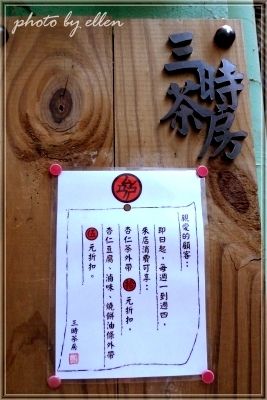 photo by ellen
三時
茶房
親愛的顧客：
即日起，每週一到週四，
來店消費可享：
杏仁茶外帶 拾 元折扣。
杏仁豆腐、滷味、燒餅油條外帶
伍 元折扣。
三時茶房